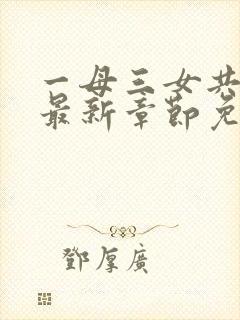 一母三女共
最新章节免
鄧厚廣